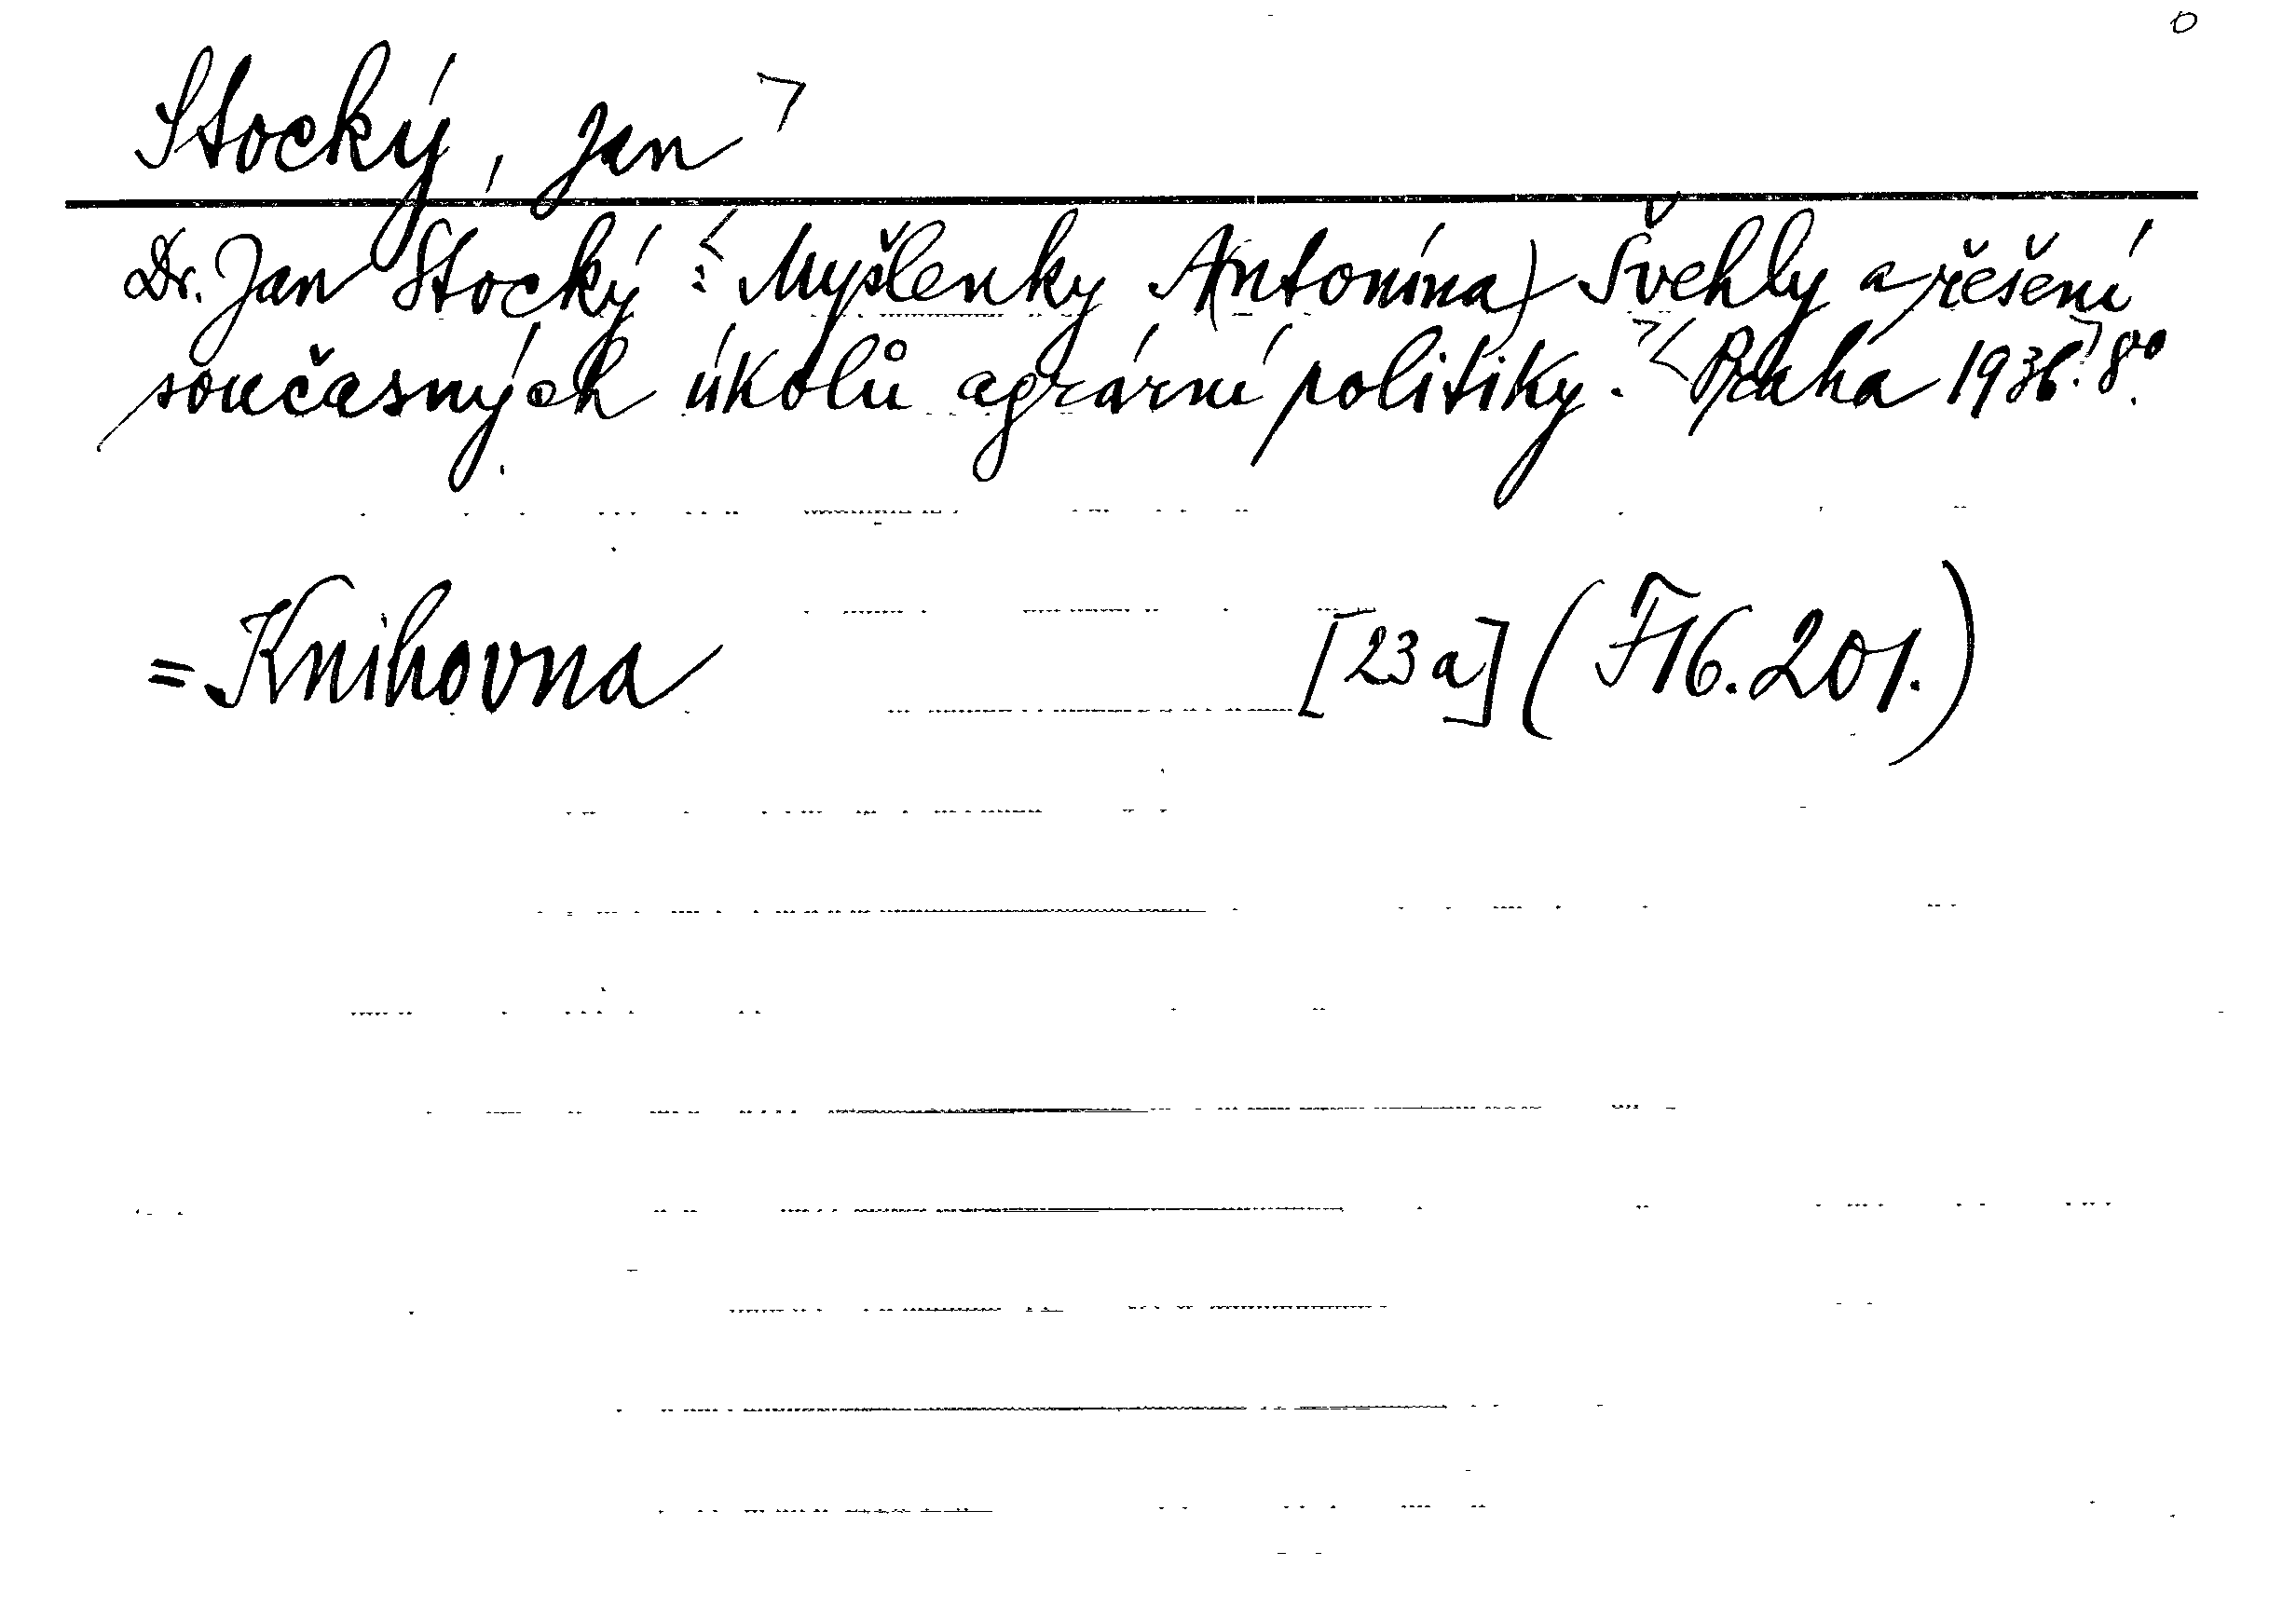 o
Stocký, Jan
Dr. Jan Stocký: Myšlenky A(ntonína) Švehly a řešení
současných úkolů agrární politiky. Praha 1936. 8°.
= Knihovna [23a] (F16.201.)